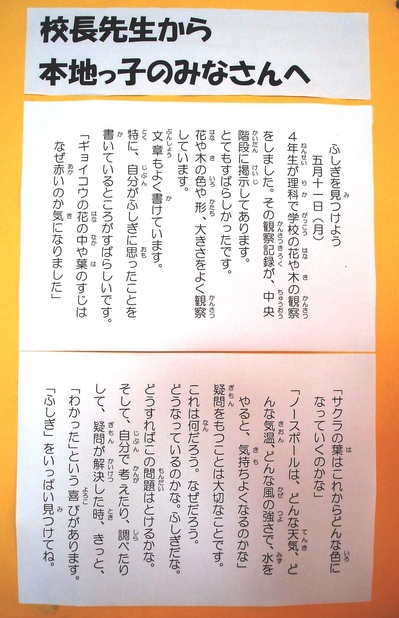 校長先生から
本地っ子のみなさんへ
ふしぎを見つけよう
五月十一日（月）
４年生が理科で学校の花や木の観察
をしました。その観察記録が、中央
階段に掲示してあります。
とてもすばらしかったです。
花や木の色や形、大きさをよく観察
しています。
文章もよく書けています。
特に、自分がふしぎに思ったことを
書いているところがすばらしいです。
「ギョイコウの花の中や葉のすじは
なぜ赤いのか気になりました」
「サクラの葉はこれからどんな色に
なっていくのかな」
「ノースポールは、どんな天気、ど
んな気温、どんな風の強さで、水を
やると、気持ちよくなるのかな」
疑問をもつことは大切なことです。
これは何だろう。なぜだろう。
どうなっているのかな。ふしぎだな。
どうすればこの問題はとけるかな。
そして、自分で考えたり、調べたり
して、疑問が解決した時、きっと、
「わかった」という喜びがあります。
「ふしぎ」をいっぱい見つけてね。